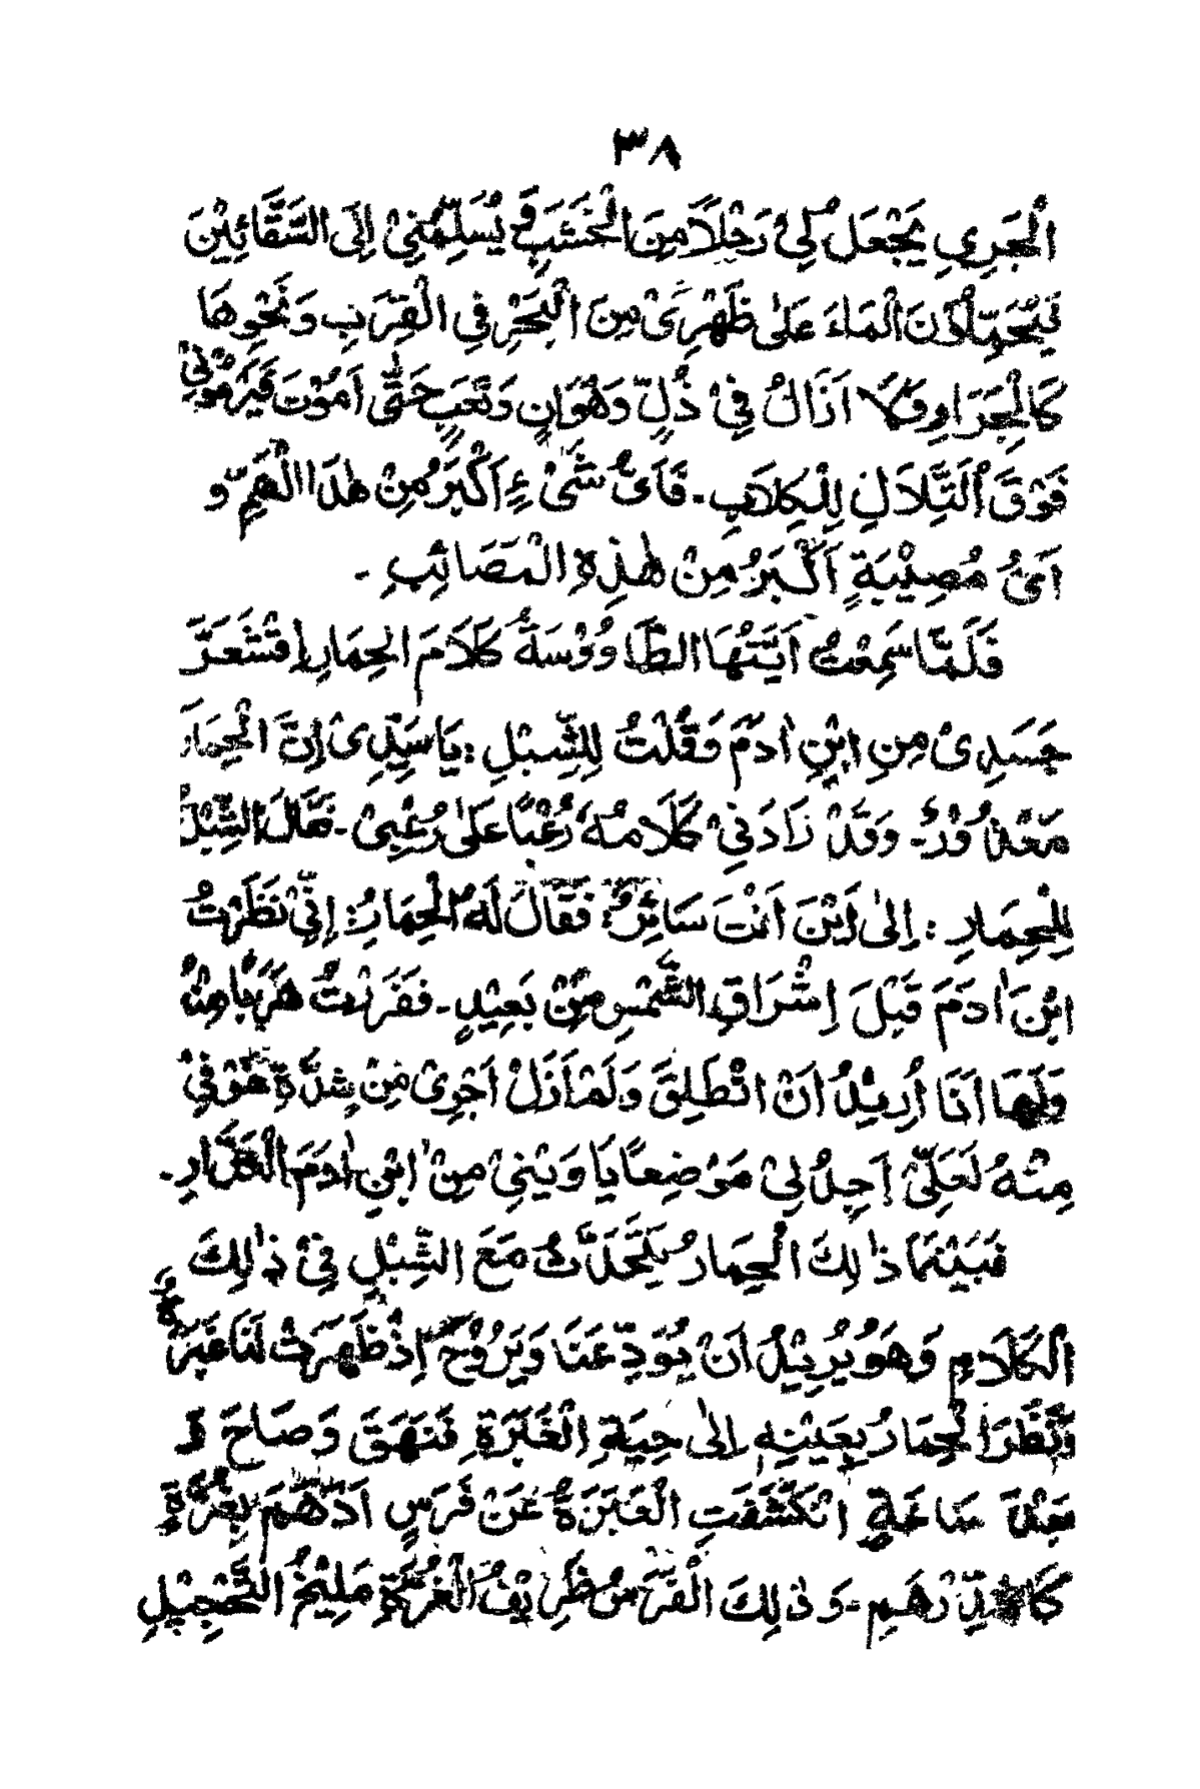 ٣٨
الْجَرِيِ يَجْعَلُ لِيْ رَحْلًا مِنَ الْخَشَبِ وَ يُسَلِّمُنِيْ إِلَى السَّقَّائِيْنَ
فَيُحَمِّلُوْنَ الْمَاءَ عَلٰى ظَهْرِيْ مِنَ الْبَحْرِ فِي الْقِرَبِ وَنَحْوِهَا
كَالْجِرَارِ وَلَا اَزَالُ فِيْ ذُلٍّ وَهَوَانٍ وَتَعَبٍ حَتّٰى اَمُوْتَ فَيَرْمُوْنِيْ
فَوْقَ التِّلَالِ لِلْكِلَابِ - فَاَيُّ شَيْءٍ اَكْبَرُ مِنْ هٰذَا الْهَمِّ وَ
اَيُّ مُصِيْبَةٍ اَكْبَرُ مِنْ هٰذِهِ الْمَصَائِبِ -
فَلَمَّا سَمِعْتُ اَيَّتُهَا الطَّاوُوْسَةُ كَلَامَ الحِمَارِ اِقْشَعَرَّ
جَسَدِيْ مِنِ ابْنِ اٰدَمَ وَقُلْتُ لِلشِّبْلِ : يَا سَيِّدِيْ إِنَّ الْحِمَارَ
مَعْذُوْرٌ - وَقَدْ زَادَنِيْ كَلَامُهُ رُعْبًا عَلٰى رُعْبِيْ - فَقَالَ الشِّبْلُ
لِلْحِمَارِ : إِلٰى اَيْنَ اَنْتَ سَائِرٌ؟ فَقَالَ لَهُ الْحِمَارُ : إِنِّيْ نَظَرْتُ
ابْنَ اٰدَمَ قَبْلَ اِشْرَاقِ الشَّمْسِ مِنْ بَعِيْدٍ - فَفَرَرْتُ هَرَبًا مِنْهُ
وَلَهَا اَنَا اُرِيْدُ اَنْ اَنْطَلِقَ وَلَمْ اَزَلْ اَجْرِيْ مِنْ شِدَّةِ خَوْفِيْ
مِنْهُ لَعَلِّيْ اَجِدُ لِيْ مَوْضِعًا يَأْوِيْنِيْ مِنْ ابْنِ اٰدَمَ الْغَدَّارِ -
فَبَيْنَمَا ذٰلِكَ الْحِمَارُ يَتَحَدَّثُ مَعَ الشِّبْلِ فِيْ ذٰلِكَ
الْكَلَامِ وَهُوَ يُرِيْدُ اَنْ يُوَدِّعَنَا وَيَرُوْحَ إِذْ ظَهَرَتْ لَنَا غَبَرَةٌ
وَنَظَرَ الْحِمَارُ بِعَيْنِهِ إِلٰى جِهَةِ الْغَبَرَةِ فَنَهَقَ وَصَاحَ وَ
بَعْدَ سَاعَةٍ انْكَشَفَتِ الْغَبَرَةُ عَنْ فَرَسٍ اَدْهَمَ بِغُرَّةٍ
كَالدِّرْهَمِ - وَذٰلِكَ الْفَرَسُ ظَرِيْفُ الْغُرَّةِ مَلِيْحُ التَّحْجِيْلِ